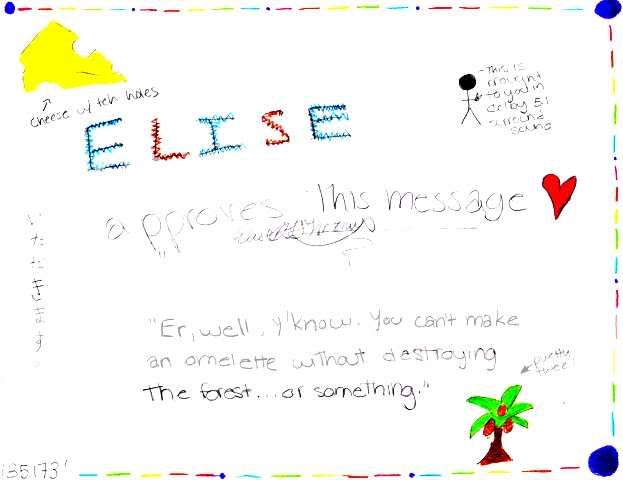 cheese w/ teh holes
-This is
brought
to you in
dolby 5.1
surround
sound
ELISE
approves This message
いただきます。
"Er, well, y'know. You can't make
an omelette without destroying
the forest...or something."
pretty
twee!